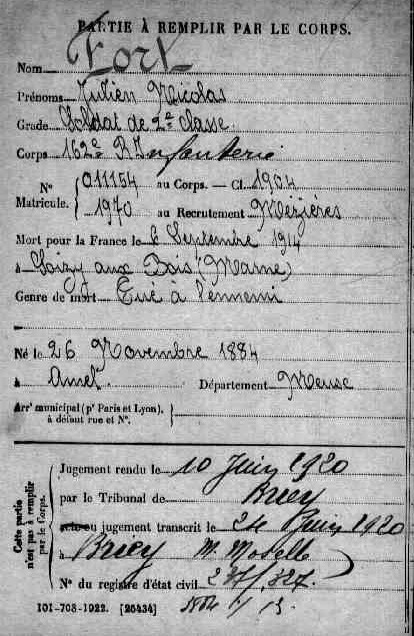 PARTIE À REMPLIR PAR LE CORPS.
Nom Fort
Prénoms Julien Nicolas
Grade Soldat de 2e classe
Corps 162e R Infanterie
N° Matricule. { 011154 au Corps. — Cl. 1904
1970 au Recrutement Mézières
Mort pour la France le 6 Septembre 1914
à Soizy aux Bois (Marne)
Genre de mort Tué à l'ennemi
Né le 26 Novembre 1884
à Amel Département Meuse
Arrt municipal (pr Paris et Lyon), à défaut rue et N°.
Cette partie n'est pas à remplir par le Corps.
Jugement rendu le 10 Juin 1920
par le Tribunal de Briey
acte ou jugement transcrit le 24 Juin 1920
à Briey M. Moselle
N° du registre d'état civil 237/327.
101-708-1922. [26434]